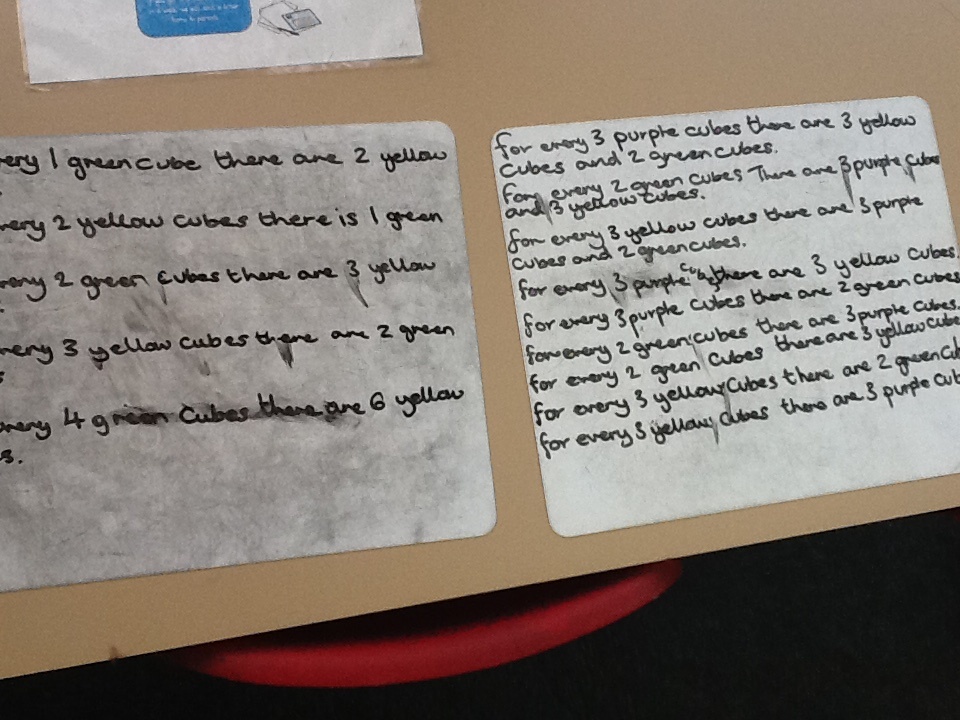 every 1 green cube there are 2 yellow
every 2 yellow cubes there is 1 green
every 2 green cubes there are 3 yellow
every 3 yellow cubes there are 2 green
s
every 4 green cubes there are 6 yellow
s.
for every 3 purple cubes there are 3 yellow
cubes and 2 green cubes.
For every 2 green cubes There are 3 purple cubes
and 3 yellow cubes.
for every 3 yellow cubes there are 3 purple
cubes and 2 green cubes.
for every 3 purple cubes there are 3 yellow cubes.
for every 3 purple cubes there are 2 green cubes
for every 2 green cubes there are 3 purple cubes.
for every 2 green cubes there are 3 yellow cube
for every 3 yellow cubes there are 2 green cub
for every 3 yellow cubes there are 3 purple cub